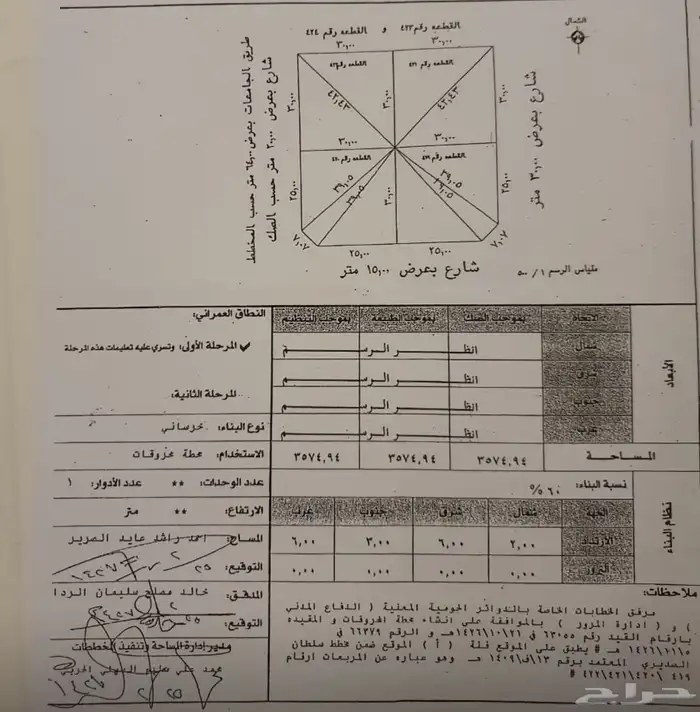 الشمال
القطعه رقم ٤٢٣ و القطعه رقم ٤٢٤
٣٠,٠٠ ٣٠,٠٠
القطعه رقم
القطعه رقم
٤٢,٤٣ ٤٢,٤٣
٣٠,٠٠ ٣٠,٠٠ ٣٠,٠٠
٣٠,٠٠ ٣٠,٠٠
القطعه رقم
القطعه رقم
٣٩,٠٥ ٣٩,٠٥
٣٩,٠٥ ٣٩,٠٥
٢٥,٠٠ ٣٠,٠٠ ٢٥,٠٠
٧,٠٧ ٧,٠٧
٢٥,٠٠ ٢٥,٠٠
شارع بعرض ٣٠,٠٠ متر
شارع بعرض ٣٠,٠٠ متر حسب الصك
طريق الجامعات بعرض ٦٤,٠٠ متر حسب المخطط
شارع بعرض ١٥,٠٠ متر
مقياس الرسم ١/ ٥٠٠
الابعاد
الاتجاه بموجب الصك بموجب الطبيعة بموجب التنظيم
شمال انظـــر الرســـم
شرق انظـــر الرســـم
جنوب انظـــر الرســـم
غرب انظـــر الرســـم
المساحـــة ٣٥٧٤,٩٤ ٣٥٧٤,٩٤ ٣٥٧٤,٩٤
النطاق العمراني:
✓ المرحلة الأولى: وتسري عليه تعليمات هذه المرحلة
المرحلة الثانية:
نوع البناء: خرساني
الاستخدام: محطة محروقات
عدد الوحدات: ** عدد الأدوار: ١
الارتفاع: ** متر
نظام البناء
نسبة البناء: ٦٠ %
الجهة شمال شرق جنوب غرب
الارتداد ٢,٠٠ ٦,٠٠ ٣,٠٠ ٦,٠٠
البروز ٠,٠٠ ٠,٠٠ ٠,٠٠ ٠,٠٠
المساح: احمد راشد عايد
التوقيع:
المدقق: خالد مصلح سليمان الردا
التوقيع:
مدير إدارة المساحة وتنفيذ المخططات
محمد علي
ملاحظات:
مرفق الخطابات الخاصة بالدوائر الحكومية المعنية ( الدفاع المدني
) و ( ادارة المرور ) بالموافقة على انشاء محطة المحروقات و المقيده
بارقام القيد رقم ٦٣٠٥٥ في ١٤٢٦/١٠/٢١هـ و الرقم ٦٦٣٧٩ في
هـ # يطبق على الموقع فئة ( أ ) الموقع ضمن مخطط سلطان
المعتمد برقم ١٣/ق/١٤٠٩ هـ وهو عباره عن المربعات ارقام
٤١٩ /٤٢٠/٤٢١/٤٢٢ #
حراج